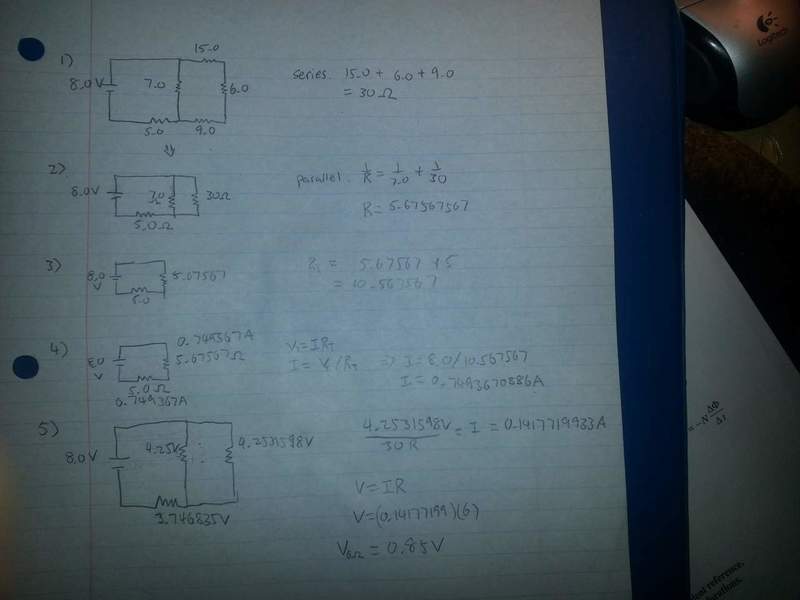 1)
15.0
8.0V
7.0
6.0
5.0
9.0
series. 15.0 + 6.0 + 9.0
= 30Ω
⇓
2)
8.0V
7.0
Ω
30Ω
5.0Ω
parallel. 1/R = 1/7.0 + 1/30
R = 5.67567567
3)
8.0
V
5.67567
5.0
RT = 5.67567 + 5
= 10.567567
4)
0.749367A
8.0
V
5.67567Ω
5.0Ω
0.749367A
VT = IRT
I = VT/RT ⇒ I = 8.0/10.567567
I = 0.7493670886A
5)
8.0V
4.25V
4.2531598V
3.746835V
4.2531598V/30R = I = 0.1417719933A
V = IR
V = (0.14177199)(6)
V6Ω = 0.85V
Logitech
= -N ΔΦ/Δt
reference.